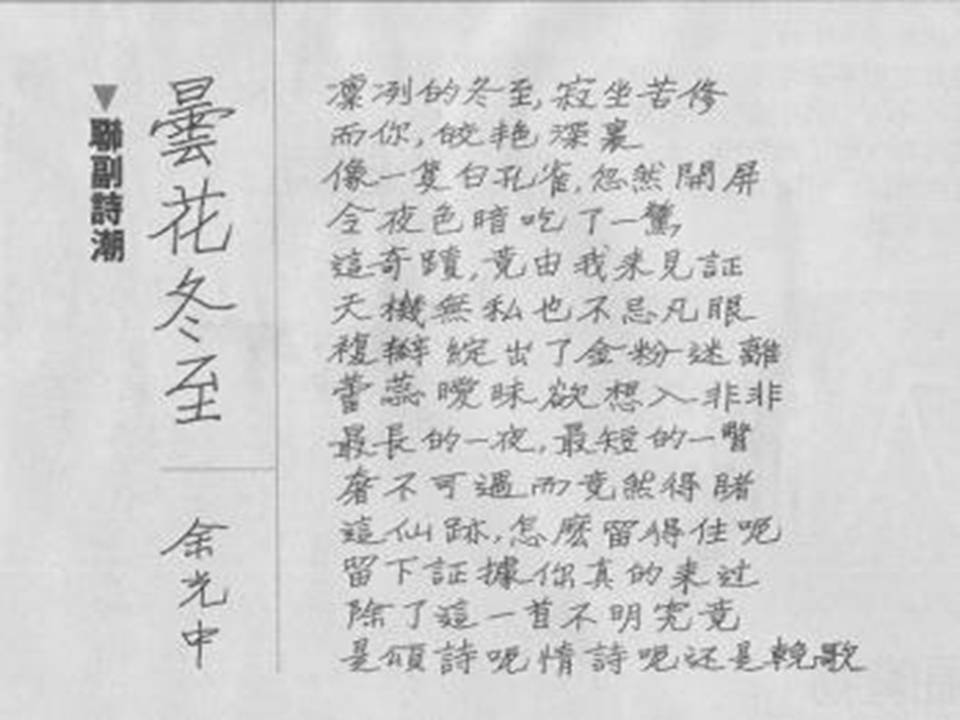 ▼聯副詩潮
曇花冬至
余光中
凜冽的冬至,寂坐苦修
而你,皎艳深裏
像一隻白孔雀,忽然開屏
令夜色暗吃了一驚,
這奇蹟,竟由我來見証
天機無私也不忌凡眼
複瓣綻出了金粉迷離
蕾蕊曖昧欲想入非非
最長的一夜,最短的一瞥
奢不可遇而竟然得睹
這仙跡,怎麼留得住呢
留下証據你真的來过
除了這一首不明究竟
是頌詩呢情詩呢还是輓歌